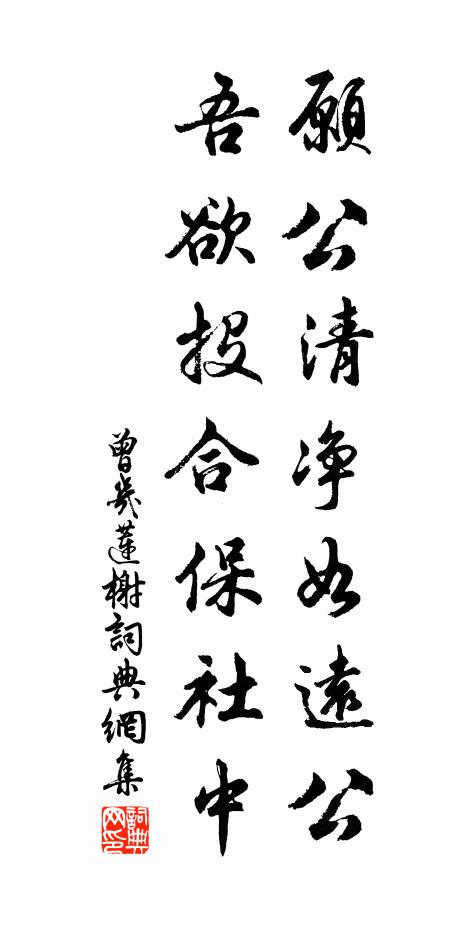 願公清净如遠公
吾欲投合保社中
曾幾蓮榭詞典網集
詞典
网印